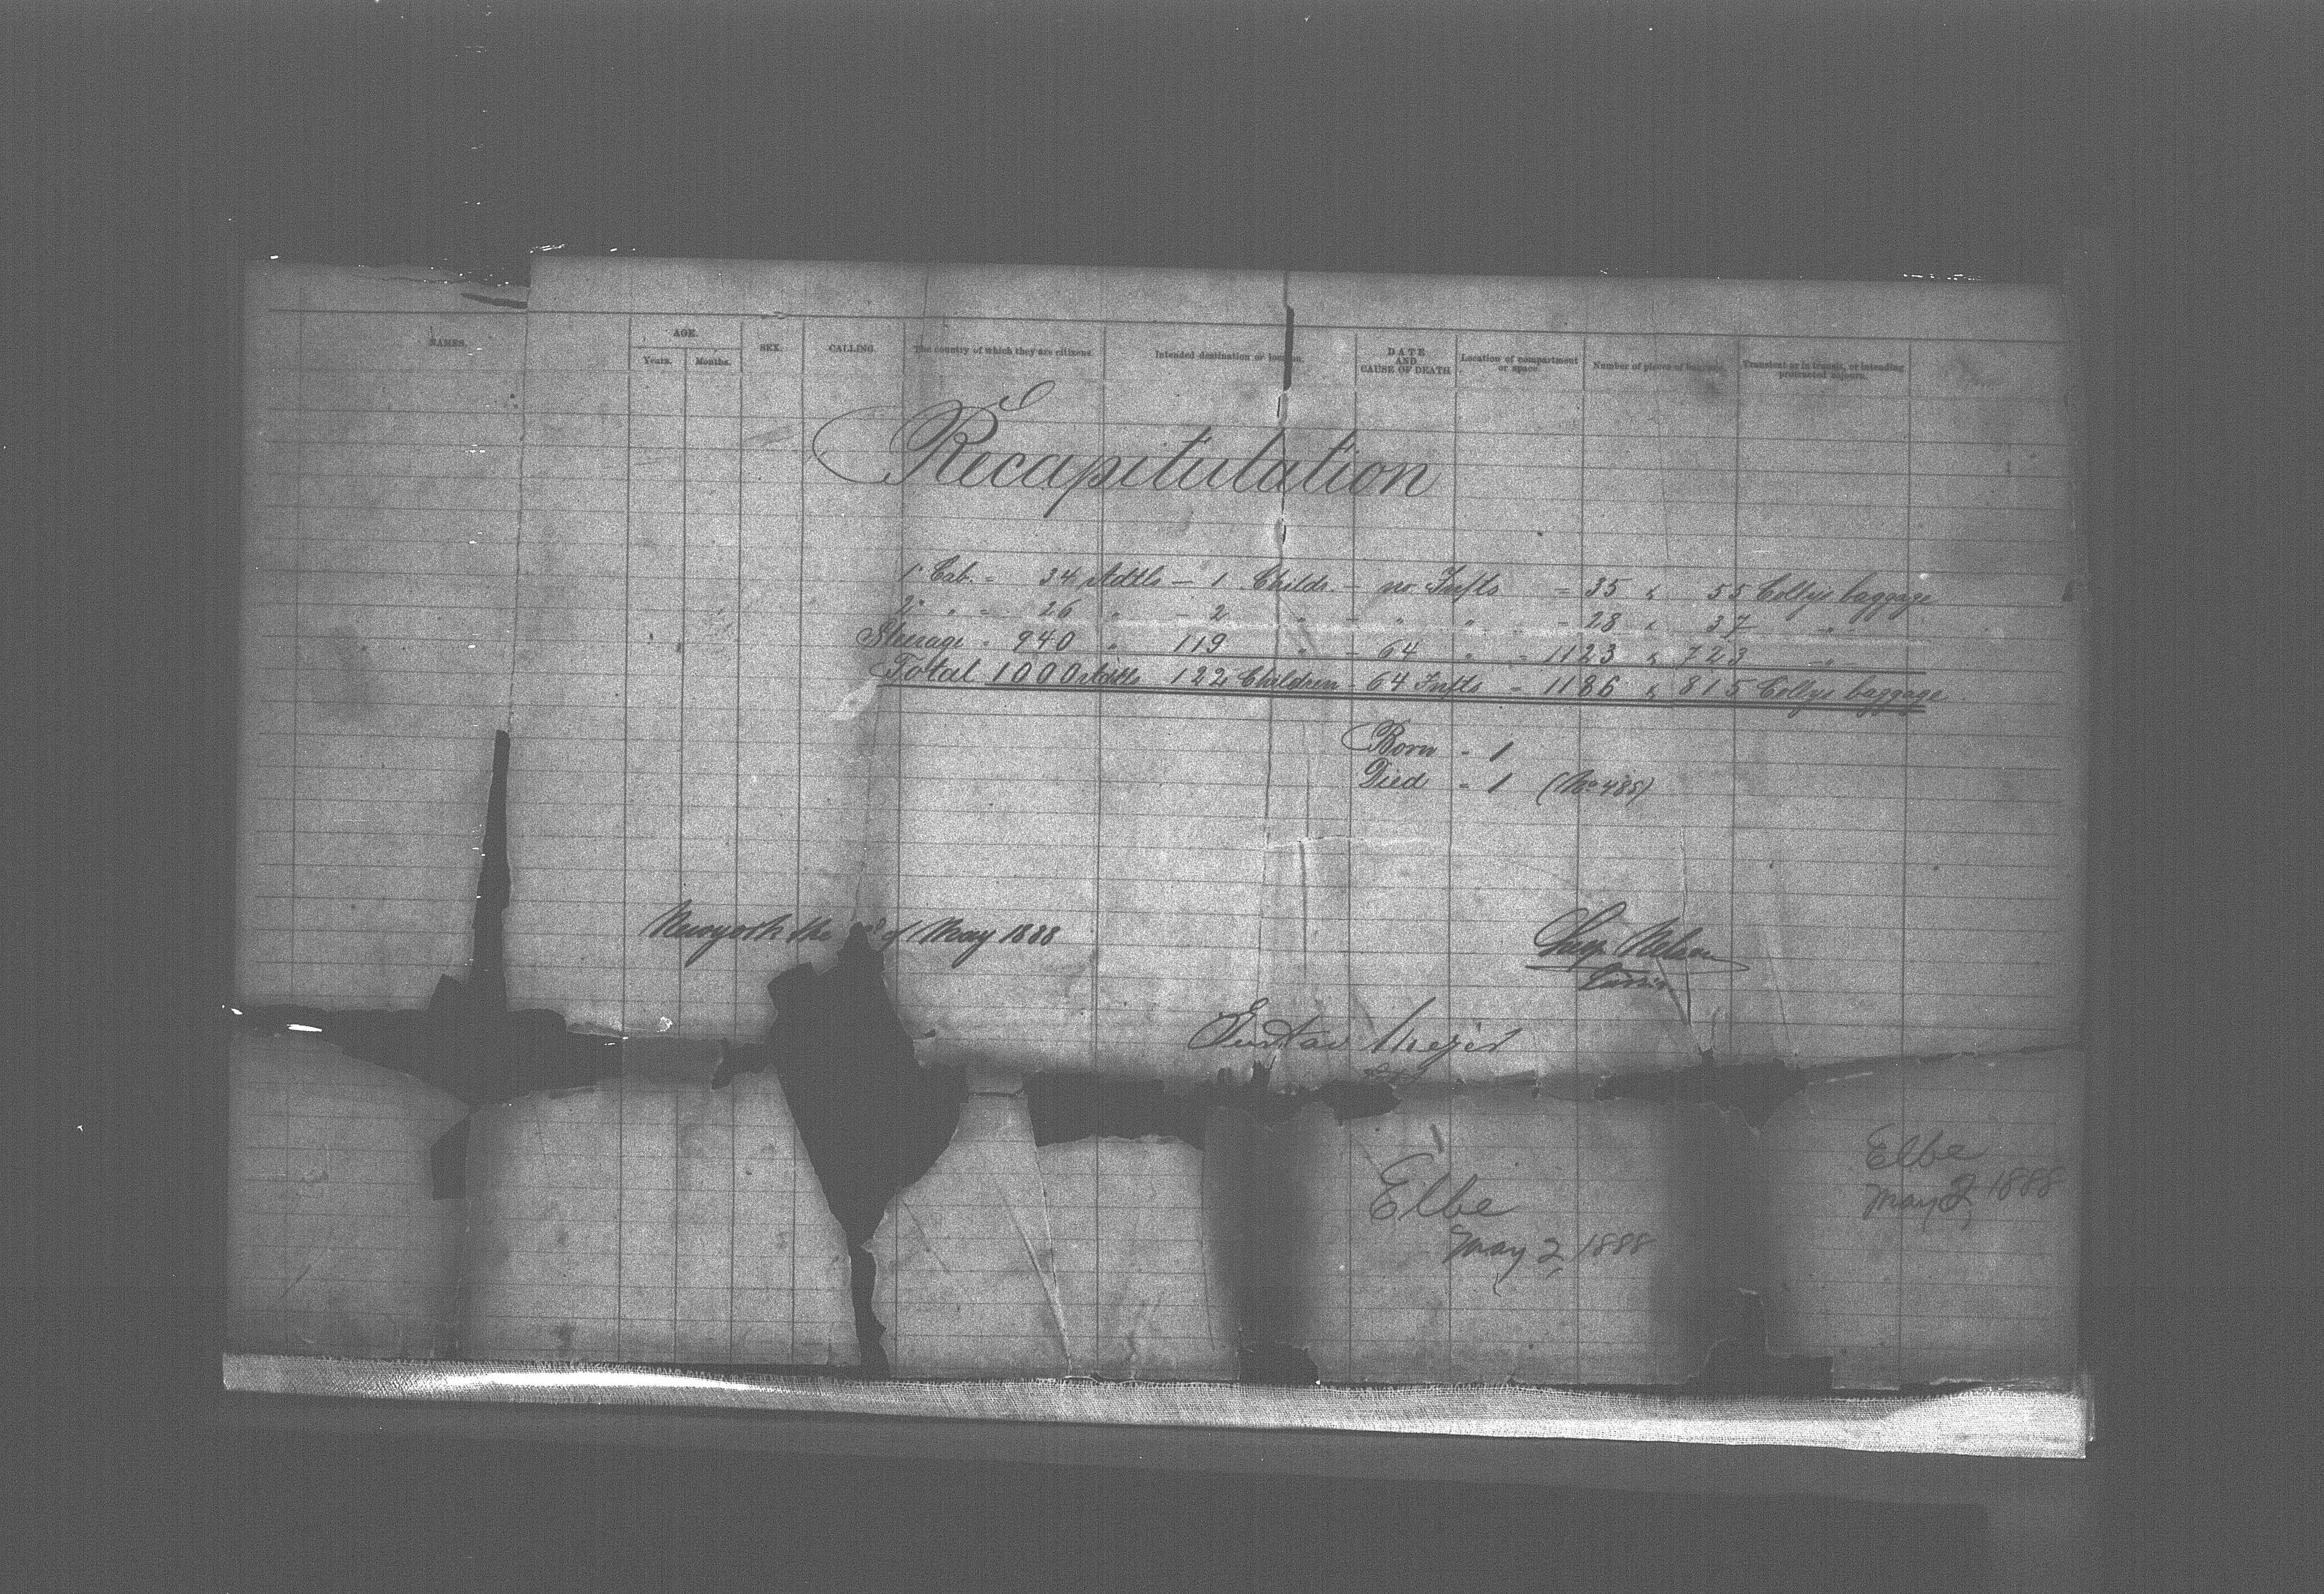 NAMES. AGE. Years. Months. SEX. CALLING. The country of which they are citizens. Intended destination or location. DATE AND CAUSE OF DEATH Location of compartment or space. Number of pieces of baggage. Transient or in transit, or intending protracted sojourn.
Recapitulation
1' Cab. = 34 Adtls — 1 Childr. — no Infts = 35 & 55 Collys baggage
2' " = 26 " — 2 " — " " = 28 & 37 — " —
Steerage = 940 " 119 " — 64 " = 1123 & 723 — " —
Total 1000 Adtls 122 Children — 64 Infts = 1186 & 815 Collys baggage
Born = 1
Died = 1 (No 485)
Newyork the of May 1888
Gustav Meyer
Elbe
May 2, 1888
Elbe
May 2, 1888